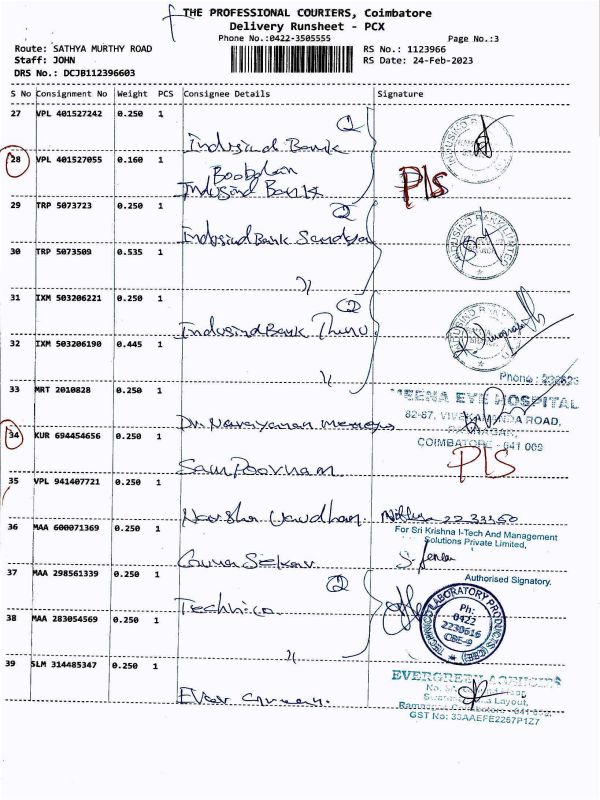 THE PROFESSIONAL COURIERS, Coimbatore
Delivery Runsheet - PCX
Phone No.:0422-3505555
Page No.:3
Route: SATHYA MURTHY ROAD
RS No.: 1123966
Staff: JOHN
RS Date: 24-Feb-2023
DRS No.: DCJB112396603
S No Consignment No Weight PCS Consignee Details Signature
27 VPL 401527242 0.250 1
Indusind Bank
28 VPL 401527055 0.160 1
Boobalan
Indusind Bank
Pls
29 TRP 5073723 0.250 1
Indusind Bank
30 TRP 5073509 0.535 1
31 IXM 503206221 0.250 1
Indusind Bank
32 IXM 503206190 0.445 1
Phone :
33 MRT 2010828 0.250 1
MEENA EYE HOSPITAL
82-87, VIVEKANANDA ROAD,
Dr. Narayanan
RAMNAGAR,
34 KUR 694454656 0.250 1
COIMBATORE - 641 009
Pls
Sampoornam
35 VPL 941407721 0.250 1
Harsha Vardhan
36 MAA 600071369 0.250 1
For Sri Krishna I-Tech And Management
Solutions Private Limited,
Guna Sekar
37 MAA 298561339 0.250 1
Authorised Signatory.
Technico
TECHNICO LABORATORY PRODUCTS (CBE)
Ph:
0422
2230616
CBE-9
38 MAA 283054569 0.250 1
39 SLM 314485347 0.250 1
EVERGREEN AGENCIES
Ever Green
GST No: 33AAEFE2267P1Z7